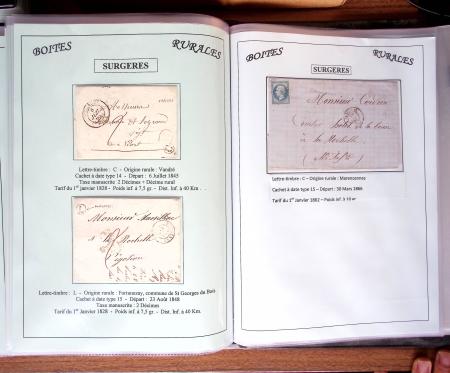 BOITES RURALES
SURGERES
Monsieur
Lettre-timbre : C - Origine rurale : Vandré
Cachet à date type 14 - Départ : 6 Juillet 1845
Taxe manuscrite 2 Décimes + Décime rural
Tarif du 1er janvier 1828 - Poids inf. à 7,5 gr. - Dist. Inf. à 40 Km.
Monsieur
La Rochelle
Lettre-timbre : L - Origine rurale : Fortunezay, commune de St Georges du Bois
Cachet à date type 15 - Départ : 23 Août 1848
Taxe manuscrite : 2 Décimes
Tarif du 1er Janvier 1828 - Poids inf. à 7,5 gr. - Dist. Inf. à 40 Km.
BOITES RURALES
SURGERES
Monsieur
La Rochelle
Lettre-timbre : C - Origine rurale : Marencennes
Cachet à date type 15 – Départ : 30 Mars 1866
Tarif du 1er Janvier 1862 – Poids inf. à 10 gr